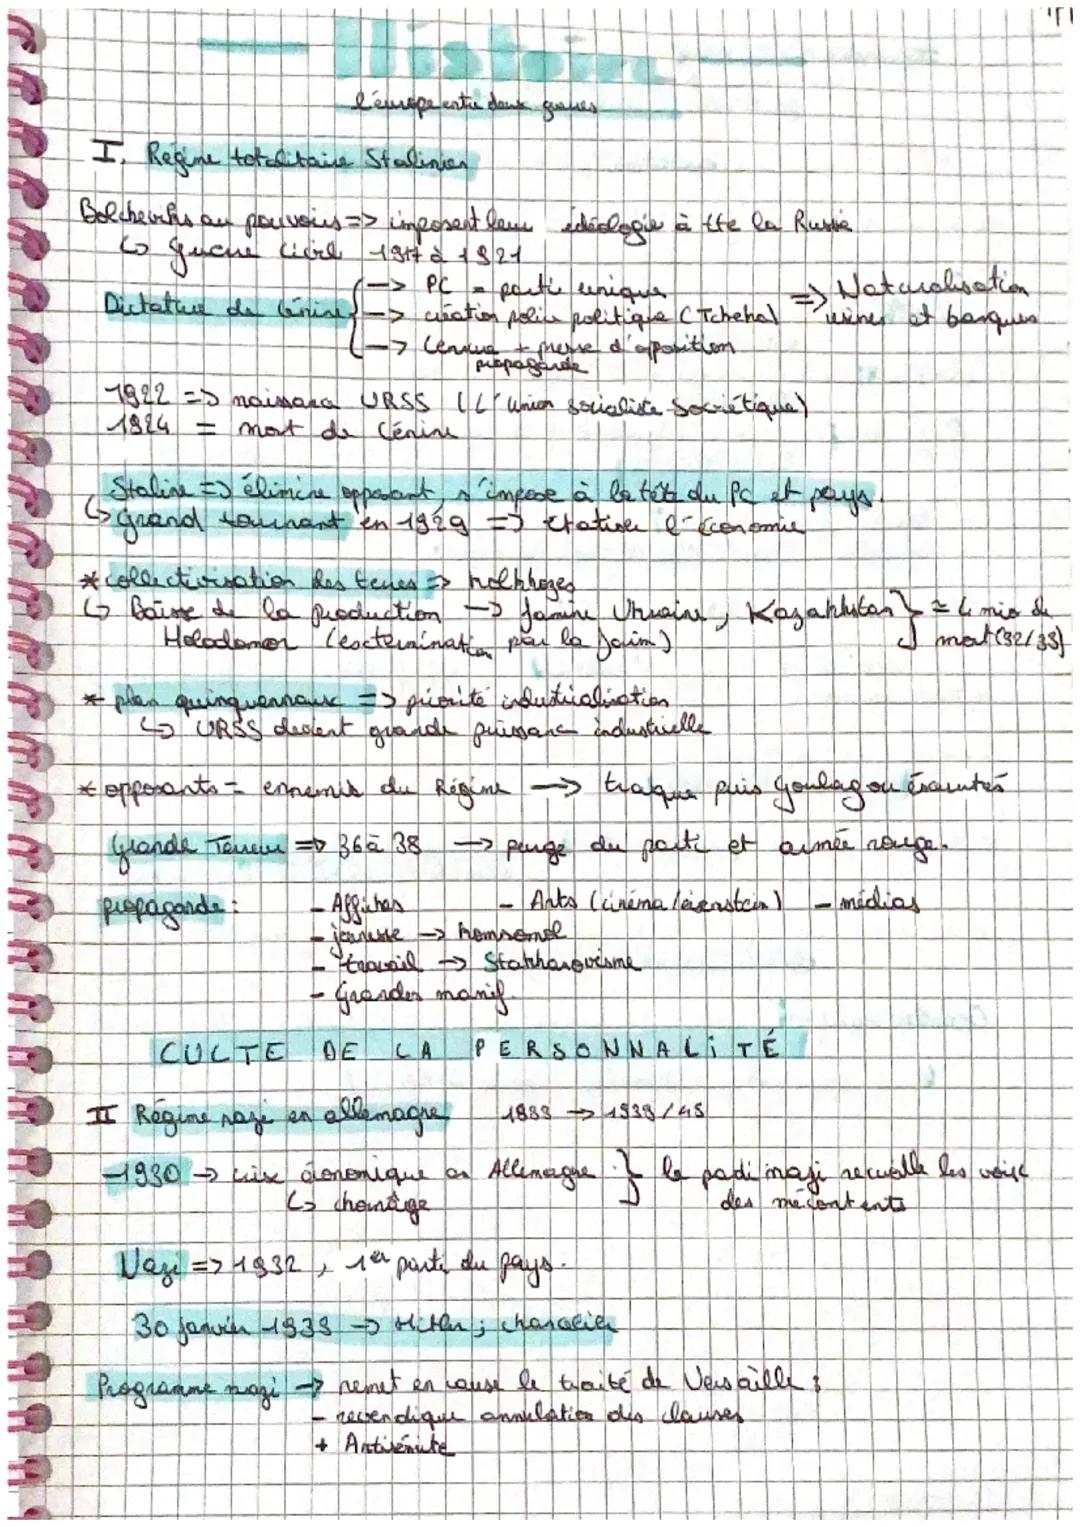 Histoire
l'europe entre deux guerres
I. Régime totalitaire Stalinien
Bolcheviks au pouvoirs => imposent leur idéologie à tte la Russie
↳ guerre civil 1917 à 1921
Dictature de Lénine
--> PC = parti unique
--> création police politique (Tcheka)
--> censure + presse d'opposition
propagande
=> Naturalisation
usines et banques
1922 => naissance URSS (L'Union Socialiste Soviétique)
1924 = mort de Lénine
Staline => élimine opposant, s'impose à la tête du PC et pays.
↳ grand tournant en 1929 => étatise l'économie
* collectivisation des terres => kolkhozes
↳ Baisse de la production --> famine Ukraine, Kazakhstan } ≈ 4 mio de
Holodomor (extermination par la faim) mort (32/33)
* plan quinquennaux => priorité industrialisation
↳ URSS devient grande puissance industrielle
* opposants = ennemis du Régime --> traque puis goulag ou éxécutés
Grande Terreur => 36 à 38 --> purge du parti et armée rouge.
propagande : - Affiches - Arts (cinéma/eisenstein) - médias
- jeunesse --> komsomol
- travail --> Stakhanovisme
- Grandes manif.
CULTE DE LA PERSONNALiTÉ
II Régime nazi en allemagne 1933 -> 1939/45
1930 -> crise économique en Allemagne } le parti nazi recueille les voix
↳ chomage des mécontents
Nazi => 1932, 1er parti du pays.
30 janvier 1933 -> Hitler ; chancelier
Programme nazi -> remet en cause le traité de Versaille :
- revendique annulation des clauses
+ Antisémite